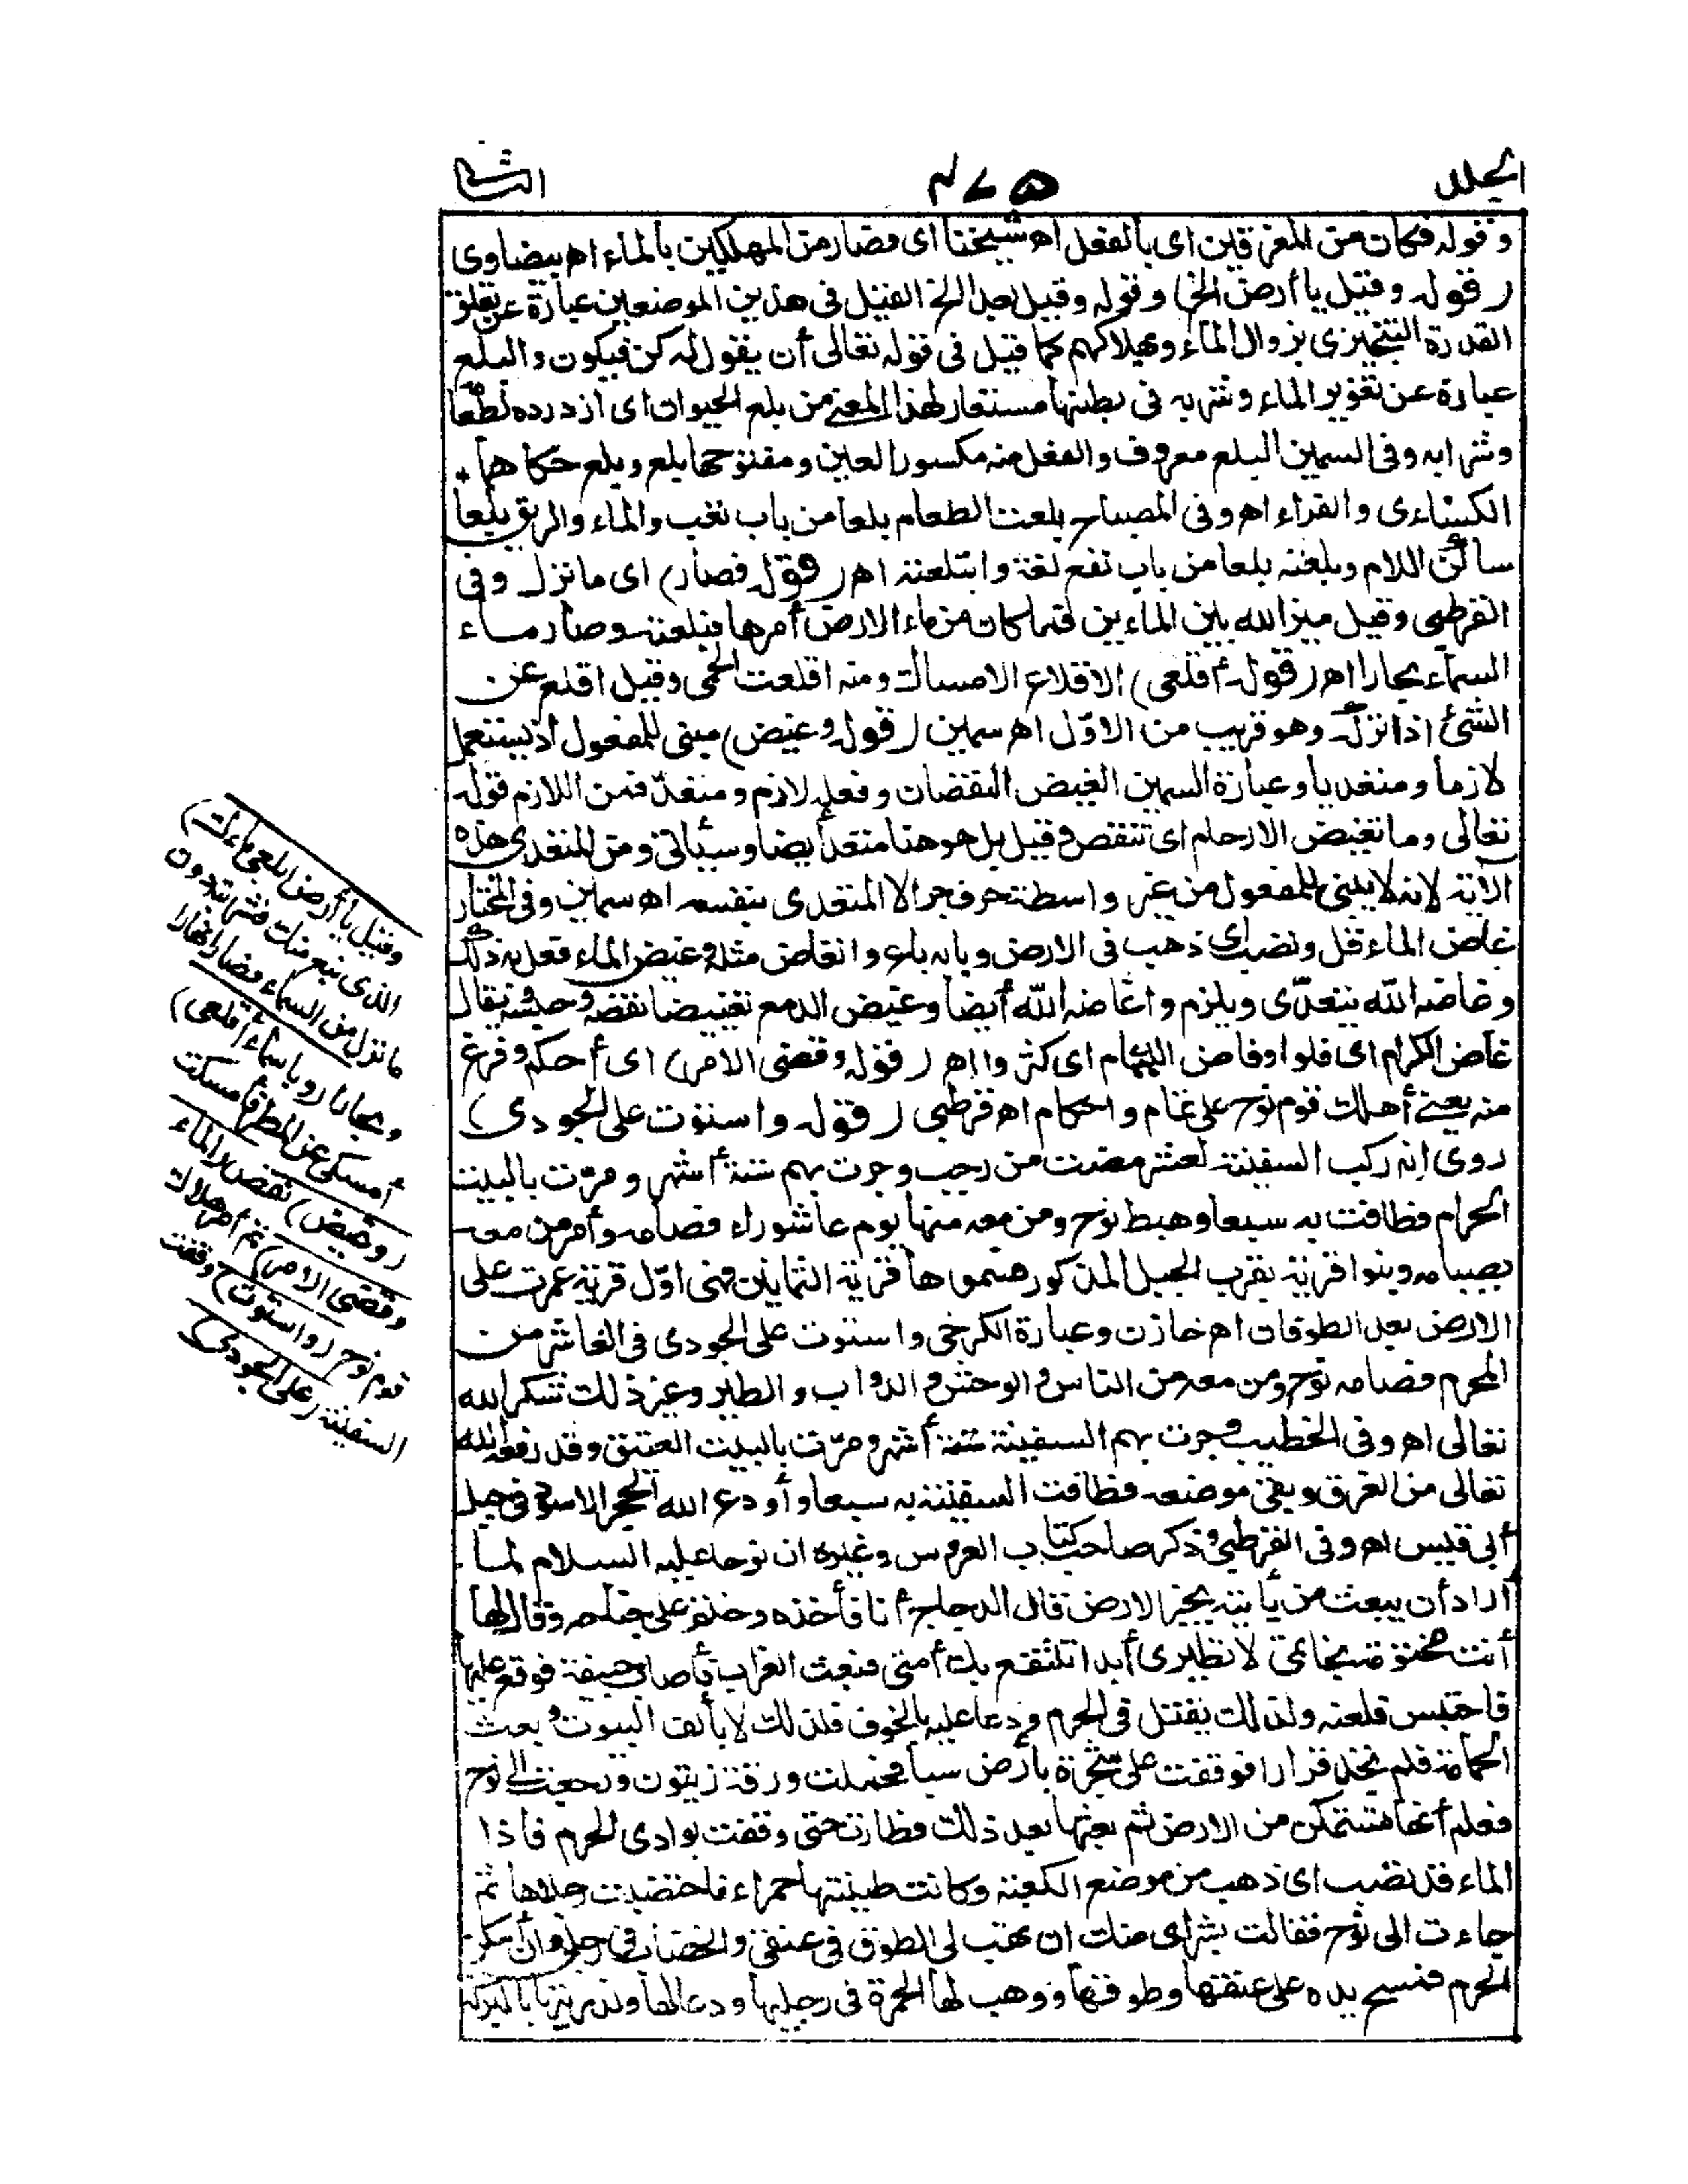 المجلد
٤٧٥
الثانى
وقوله فكان من المغرقين اى بالفعل اه شيخنا اى فصار من المهلكين بالماء اه بيضاوى
(قوله وقيل يا أرض الخ) وقوله وقيل بعدا الخ القيل فى هذين الموضعين عبارة عن تعلق
القدرة التنجيزى بزوال الماء وبهلاكهم كما قيل فى قوله تعالى أن يقول له كن فيكون والبلع
عبارة عن تغوير الماء وشربه فى بطنها مستعار لهذا المعنى من بلع الحيوان اى ازدرده لطعامه
وشرابه وفى السمين البلع معروف والفعل منه مكسور العين ومفتوحها بلع وبلع حكاهما
الكسائى والفراء اه وفى المصباح بلعت الطعام بلعا من باب تعب والماء والريق بلعا
ساكن اللام وبلعته بلعا من باب نفع لغة وابتلعته اه (قوله فصار) اى ما نزل وفى
القرطبى وقيل ميز الله بين الماءين فما كان من ماء الارض أمرها فبلعته وصار ماء
السماء بحارا اه (قوله أقلعى) الاقلاع الامساك ومنه اقلعت الحمى وقيل اقلع عن
الشئ اذا تركه وهو قريب من الاوّل اه سمين (قوله وغيض) مبنى للمفعول اذ يستعمل
لازما ومتعديا وعبارة السمين الغيض النقصان وفعله لازم ومتعدّ فمن اللازم قوله
تعالى وما تغيض الارحام اى تنقص وقيل بل هو هنا متعد أيضا وسيأتى ومن المتعدى هذه
الآية لانه لا يبنى للمفعول من غير واسطة حرف جر الا المتعدى بنفسه اه سمين وفى المختار
غاض الماء قل ونضب اى ذهب فى الارض وبابه باع وانغاض مثله وغيض الماء فعل به ذلك
وغاضه الله يتعدّى ويلزم واغاضه الله أيضا وغيض الدمع تغييضا نقصه وحبسه ويقال
غاض الكرام اى قلوا وفاض اللئام اى كثروا اه (قوله وقضى الامر) اى أحكم وفرغ
منه يعنى أهلك قوم نوح على تمام واحكام اه قرطبى (قوله واستوت على الجودى)
روى انه ركب السفينة لعشر مضت من رجب وجرت بهم ستة أشهر ومرّت بالبيت
الحرام فطافت به سبعا وهبط نوح ومن معه منها يوم عاشوراء فصامه وأمر من معه
بصيامه وبنوا قرية بقرب الجبل المذكور فسموها قرية الثمانين فهى اوّل قرية عمرت على
الارض بعد الطوفان اه خازن وعبارة الكرخى واستوت على الجودى فى العاشر من
المحرم فصامه نوح ومن معه من الناس والوحش والدواب والطير وغير ذلك شكرا لله
تعالى اه وفى الخطيب وجرت بهم السفينة ستة أشهر ومرّت بالبيت العتيق وقد رفعه الله
تعالى من الغرق وبقى موضعه فطافت السفينة به سبعا وأودع الله الحجر الاسود فى جبل
أبى قبيس اه وفى القرطبى وذكر صاحب كتاب العروس وغيره ان نوحا عليه السلام لما
أراد أن يبعث من يأتيه بخبر الارض قال الدجاج أنا فأخذه وختم على جناحه وقال لها
أنت مختومة بخاتمى لا تطيرى أبدا تنتفع بك أمتى فبعث الغراب فأصاب جيفة فوقع عليها
فاحتبس فلعنه ولذلك يقتل فى الحرم ودعا عليه بالخوف فلذلك لا يألف البيوت وبعث
الحمامة فلم تجد قرارا فوقفت على شجرة بأرض سبا فحملت ورقة زيتون ورجعت الى نوح
فعلم أنها لم تستمكن من الارض ثم بعثها بعد ذلك فطارت حتى وقفت بوادى الحرم فاذا
الماء قد نضب اى ذهب من موضع الكعبة وكانت طينتها حمراء فاختضبت رجلاها ثم
جاءت الى نوح فقالت بشراى منك ان تهب لى الطوق فى عنقى والخضاب فى رجلى وأن أسكن
الحرم فمسح يده على عنقها وطوقها ووهب لها الحمرة فى رجليها ودعا لها ولذريتها بالبركة
وقيل يا أرض ابلعى ماءك)
الذى نبع منك فشربته دون
ما نزل من السماء فصار انهارا
وبحارا (ويا سماء أقلعى)
أمسكى عن المطر فأمسكت
(وغيض) نقص (الماء
وقضى الامر) تم أمر هلاك
قوم نوح (واستوت) وقفت
السفينة (على الجودى)